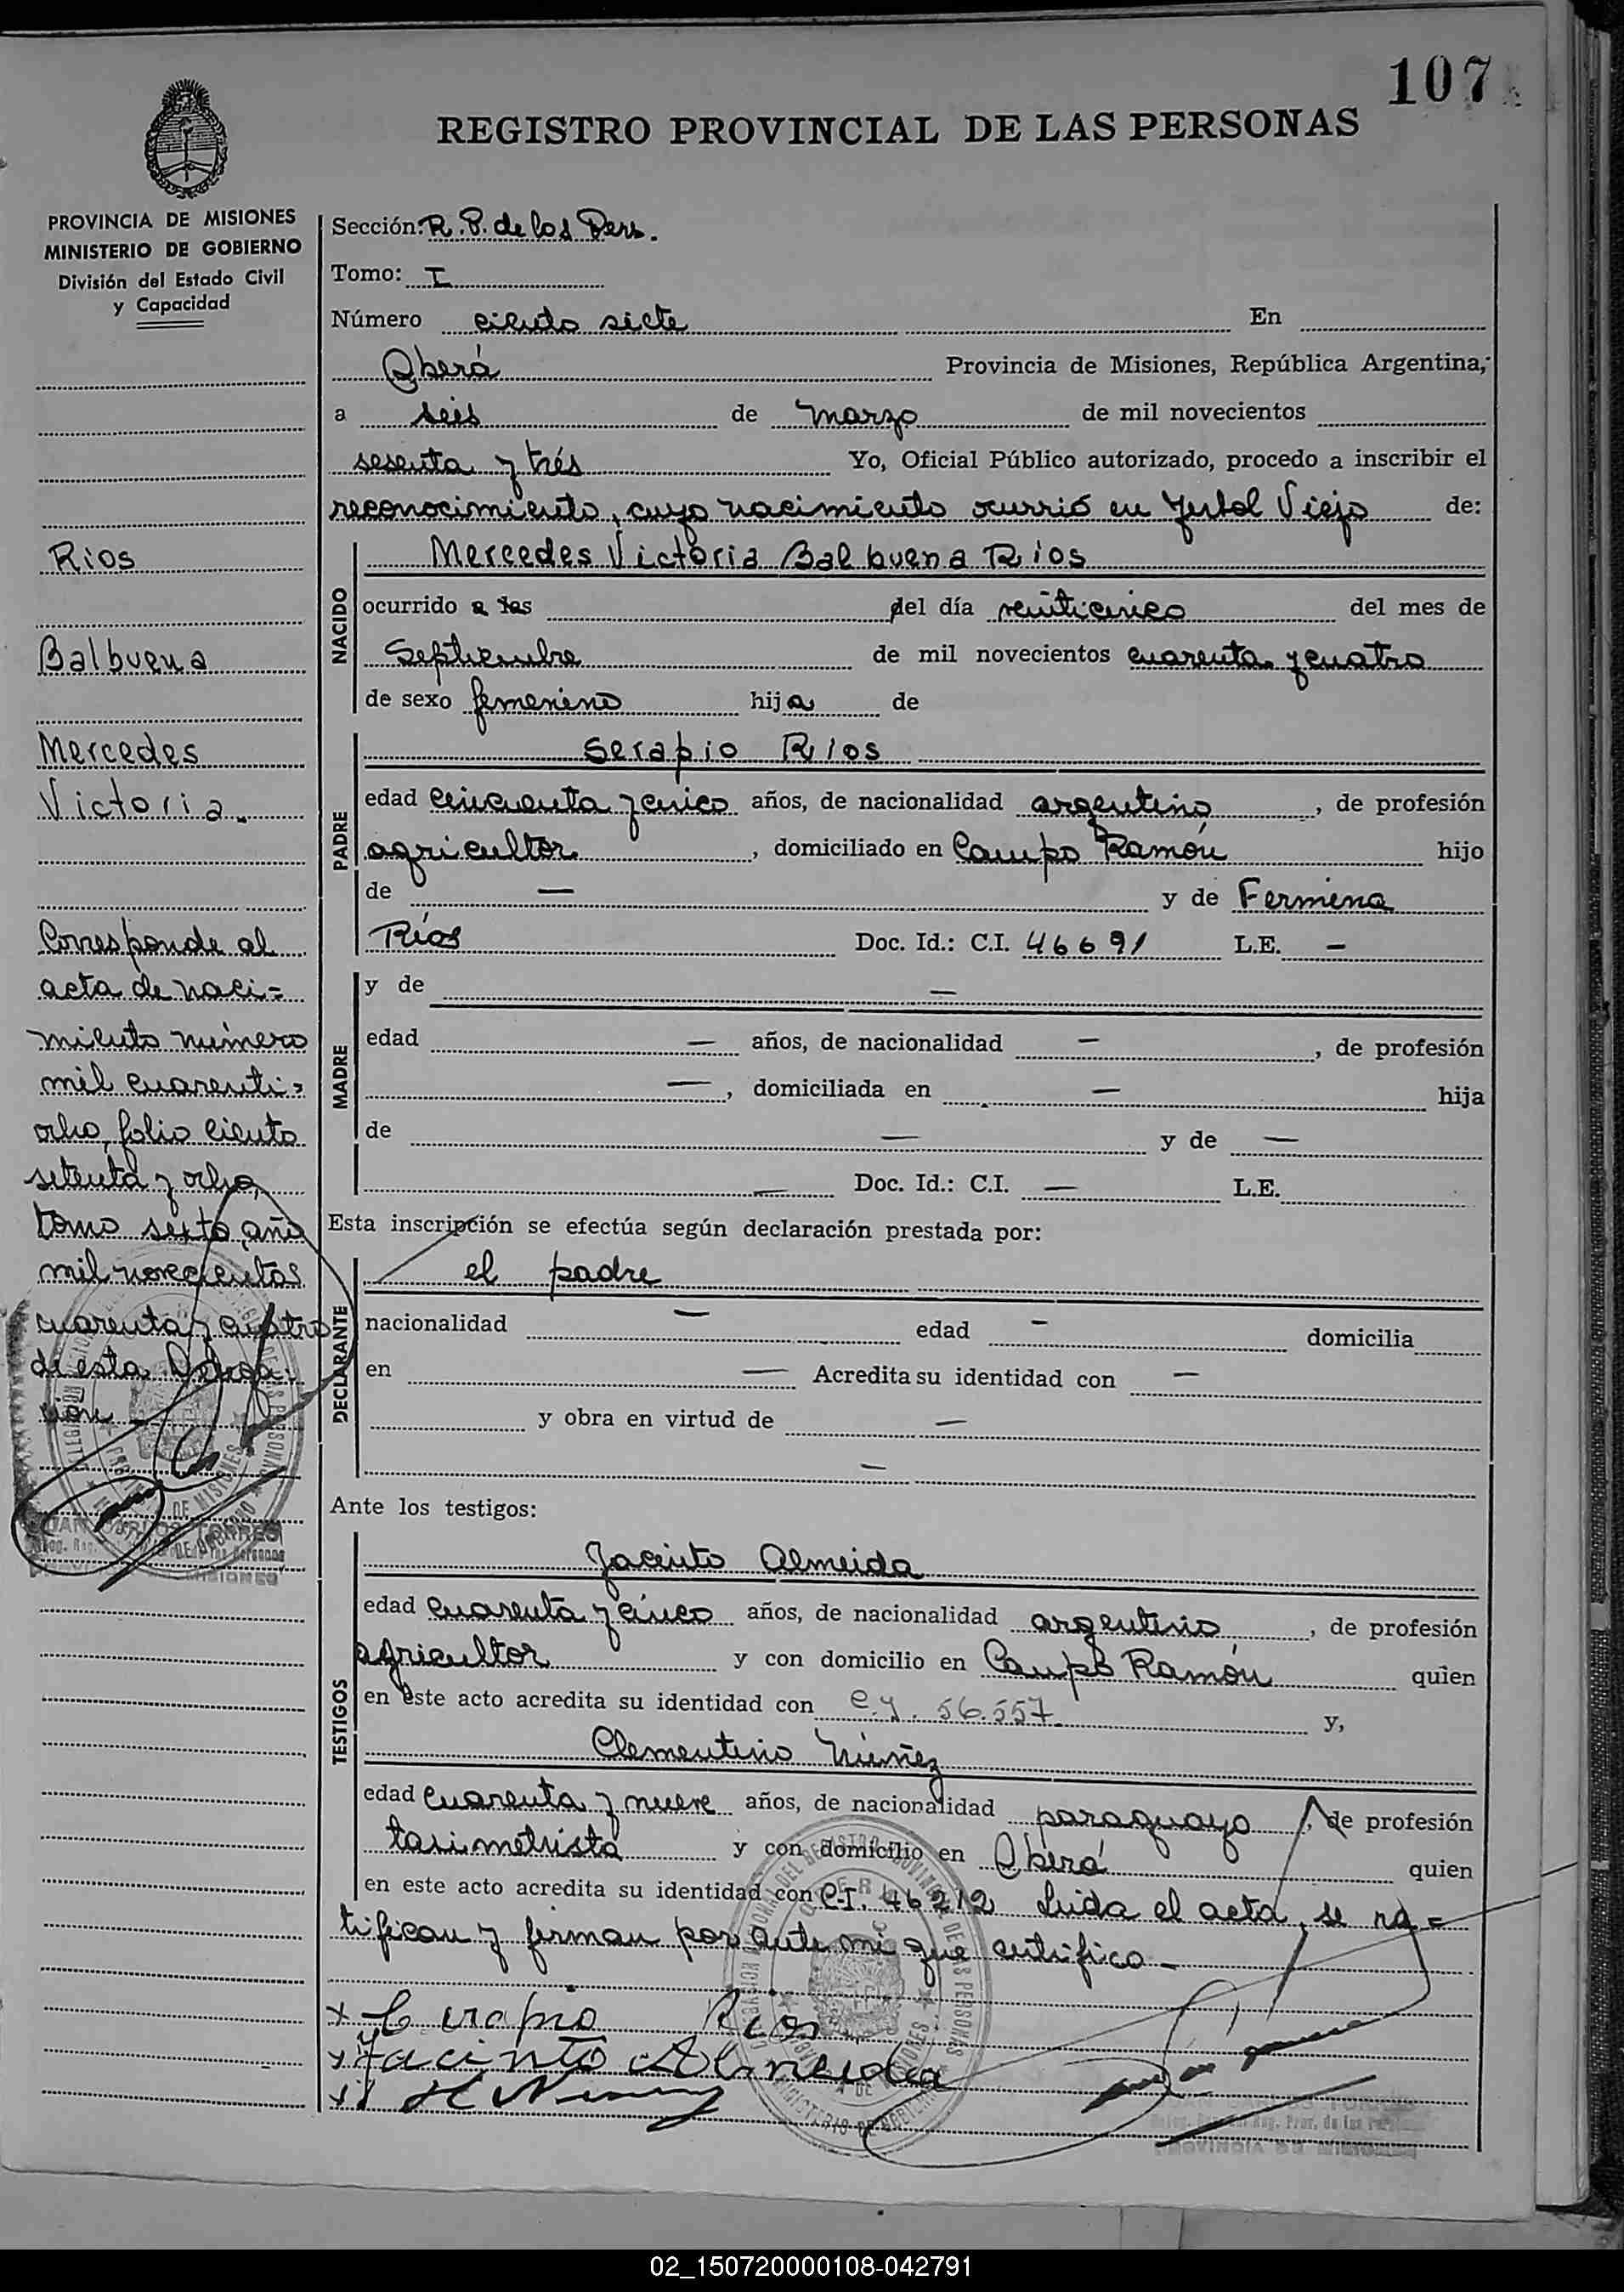 107
REGISTRO PROVINCIAL DE LAS PERSONAS
PROVINCIA DE MISIONES
MINISTERIO DE GOBIERNO
División del Estado Civil
y Capacidad
Rios
Balbuena
Mercedes
Victoria.
Corresponde al
acta de naci=
miento número
mil cuarenti=
ocho, folio ciento
setenta y ocho,
tomo sexto, año
mil novecientos
cuarenta y cuatro
de esta Delega-
ción
JUAN CARLOS TORRES
Sección: R. P. de las Pers.
Tomo: I
Número ciento siete En
Oberá Provincia de Misiones, República Argentina,
a seis de marzo de mil novecientos
sesenta y trés Yo, Oficial Público autorizado, procedo a inscribir el
reconocimiento, cuyo nacimiento ocurrió en Yerbal Viejo de:
NACIDO
Mercedes Victoria Balbuena Rios
ocurrido a las del día veinticinco del mes de
Septiembre de mil novecientos cuarenta y cuatro
de sexo femenino hija de
PADRE
Serapio Rios
edad cincuenta y cinco años, de nacionalidad argentino, de profesión
agricultor, domiciliado en Campo Ramón hijo
de — y de Fermina
Ríos Doc. Id.: C.I. 46691 L.E. —
MADRE
y de —
edad — años, de nacionalidad —, de profesión
—, domiciliada en — hija
de — y de —
— Doc. Id.: C.I. — L.E.
Esta inscripción se efectúa según declaración prestada por:
DECLARANTE
el padre
nacionalidad — edad — domicilia
en — Acredita su identidad con —
y obra en virtud de —
—
Ante los testigos:
TESTIGOS
Jacinto Almeida
edad cuarenta y cinco años, de nacionalidad argentino, de profesión
agricultor y con domicilio en Campo Ramón quien
en este acto acredita su identidad con C.I. 56.557 y,
Clementino Núñez
edad cuarenta y nueve años, de nacionalidad paraguayo, de profesión
taximetrista y con domicilio en Oberá quien
en este acto acredita su identidad con C.I. 46212 Leída el acta, se ra=
tifican y firman por ante mí que certifico-
x Cerapio Rios
x Jacinto Almeida
JUAN CARLOS TORRES
PROVINCIA DE MISIONES
02_150720000108-042791